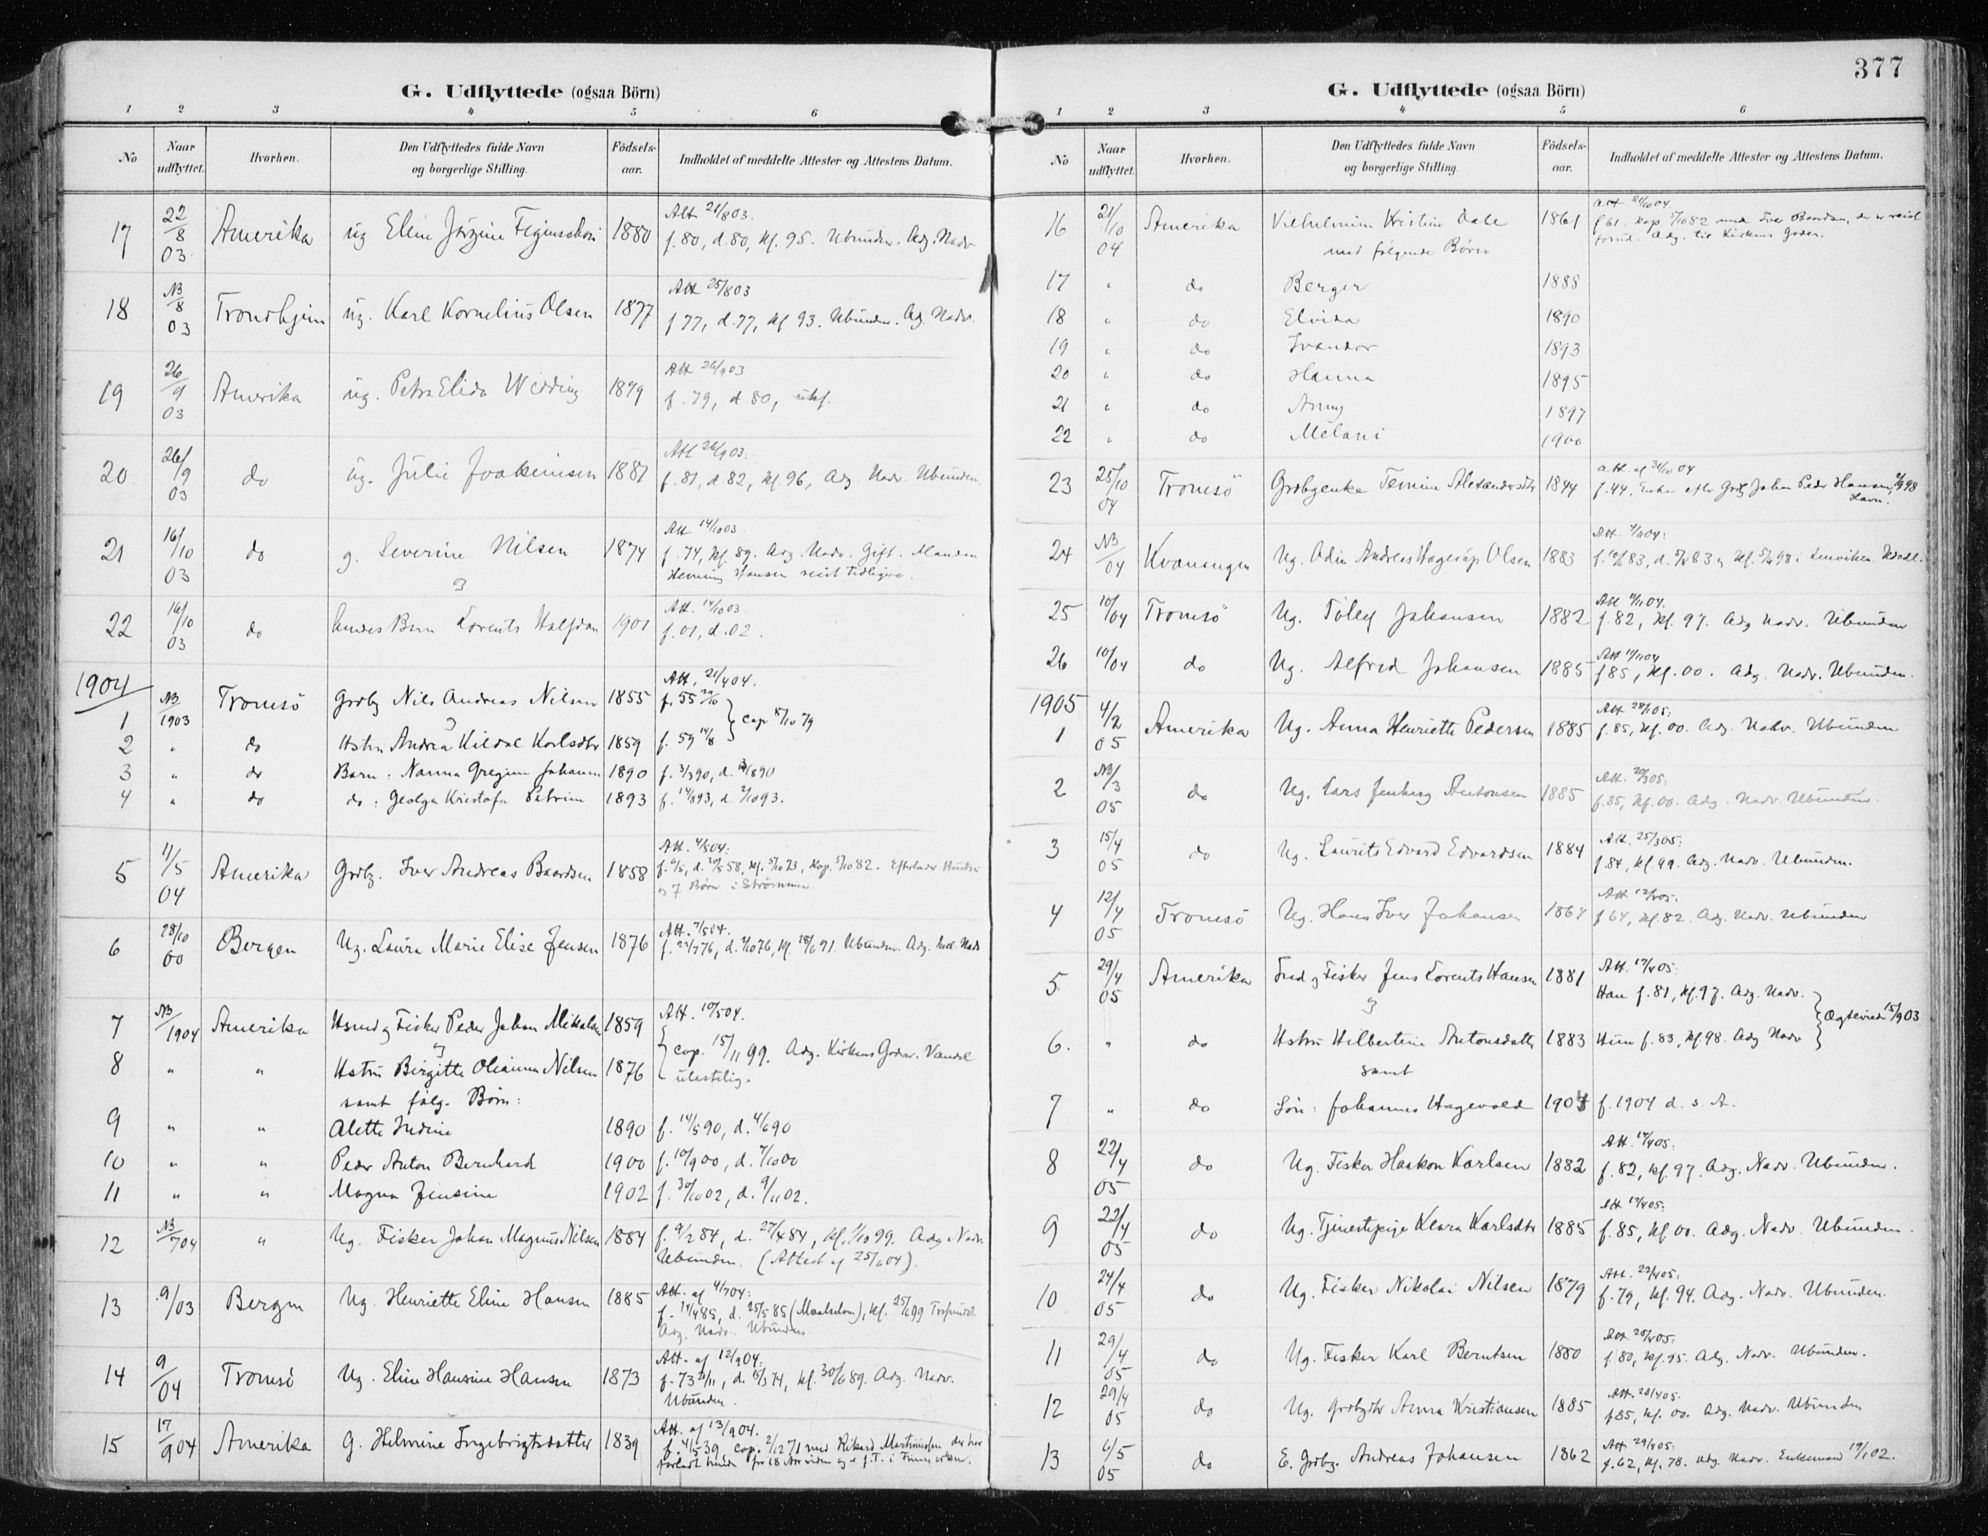 G. Udflyttede (ogsaa Börn)
1 2 3 4 5 6
No Naar udflyttet. Hvorhen. Den Udflyttedes fulde Navn og borgerlige Stilling. Födsels-aar. Indholdet af meddelte Attester og Attestens Datum.
17 22/8 03 Amerika ug Eline Jörgine 1880 Att 21/8 03. f. 80, d. 80, kf. 95. Ubunden. Adg. Nadv
18 N3/8 03 Trondhjem ug. Karl Kornelius Olsen 1877 Att 25/8 03 f 77, d. 77, kf 93. Ubunden. Adg. Nadv.
19 26/9 03 Amerika ug. Petra Elida Wedding 1879 Att 26/9 03 f. 79, d. 80, ukf.
20 26/9 03 do ug. Julie Joakimsen 1881 Att 26/9 03. f. 81, d. 82, kf. 96, Adg. Nadv. Ubunden.
21 16/10 03 do g. Severine Nilsen 1874 Att 14/10 03. f. 74, kf. 89. Adg. Nadv. Gift. Manden Henning Hansen reist tidligere.
og
22 16/10 03 do hendes Barn Lorents Halfdan 1901 Att. 14/10 03. f. 01, d. 02.
1904
1 N3/1903 Tromsö Grdbg Nils Andreas Nilsen 1855 Att. 21/4 04. f. 55 cop 15/10 79
2 " do Hstru Andrea Kildal Karlsdtr 1859 f. 59 14/8
3 " do Barn: Nanna Gregine Johanne 1890 f. 3/3 90, d. 890
4 " do do: Georga Kristofa Petrine 1893 f. 14/8 93, d. 2/10 93.
5 11/5 04 Amerika Grdbg. Iver Andreas Baardsen 1858 Att. 4/5 04: f. 6/5, d. 30/5 58, kf. 5/10 73, kop. 5/10 82. Efterlader Hustru og 7 Börn i Strömmen
6 28/10 00 Bergen Ug. Laura Marie Elise Jensen 1876 Att. 7/5 04: f. 22/7 76, d. 1/10 76, kf. 28/6 91. Ubunden. Adg. til Nadv
7 N3/1904 Amerika Hsmd og Fisker Peder Johan Mikalsen 1859 Att. 10/5 04.
og cop. 15/11 99. Adg. Kirkens Goder. Vandel ulastelig.
8 " " Hstru Birgitte Olianna Nilsen 1876
samt følg. Börn:
9 " " Alette Indine 1890 f. 14/5 90, d. 4/6 90
10 " " Peder Anton Bernhard 1900 f. 10/9 00, d. 7/10 00
11 " " Magna Jensine 1902 f. 30/10 02, d. 9/11 02.
12 N3/7 04 " Ug. Fisker Johan Magnus Nilsen 1884 f. 9/2 84, d. 27/4 84, kf. 1/10 99. Adg Nadv. Ubunden. (Attest af 25/6 04).
13 9/03 Bergen Ug. Henriette Eline Hansen 1885 Att. af 4/7 04: f. 14/4 85, d. 25/5 85 (Maalselven), kf. 25/6 99 Adg. Nadv. Ubunden.
14 9/04 Tromsö Ug. Eline Hansine Hansen 1873 Att. af 12/9 04: f. 73 /11, d. 15/3 74, kf. 30/6 89. Adg. Nadv. Ubunden.
15 17/9 04 Amerika g. Helmine Ingebrigtsdatter 1839 Att. af 13/9 04. f. 4/5 39 cop. 2/12 71 med Rikard Martinussen der har forladt hende for 18 Aar siden og e f. T. i Finmarken.
377
G. Udflyttede (ogsaa Börn)
1 2 3 4 5 6
No Naar udflyttet. Hvorhen. Den Udflyttedes fulde Navn og borgerlige Stilling. Födsels-aar. Indholdet af meddelte Attester og Attestens Datum.
16 21/10 04 Amerika Vilhelmine Kristine Dale 1861 Att 21/10 04. f 61. kop. 5/10 82 med Iver Baardsen, der er reist forud. Adg. til Kirkens Goder.
med følgende Börn
17 " do Berger 1888
18 " do Elvida 1890
19 " do Ivander 1893
20 " do Hanna 1895
21 " do Anny 1897
22 " do Melani 1900
23 25/10 04 Tromsö Grdbgenke Alexandersdtr 1844 Att af 31/10 04 f. 44, Enke efter Grdbg Johan Peder Hansen, 98
24 N3/04 Kvænangen Ug. Odin Andreas Hagerup Olsen 1883 Att. 04: f. 83, d. 83, kf. 98 i Lenviken
25 10/04 Tromsö Ug. Johansen 1882 Att 11/11 04. f. 82, kf. 97. Adg Nadv. Ubunden
26 10/04 do Ug. Alfred Johansen 1885 Att 11/11 04 f 85, kf. 00. Adg. Nadv. Ubunden.
1905
1 4/2 05 Amerika Ug. Anna Henriette Pedersen 1885 Att 28/1 05: f. 85, kf. 00. Adg. Nadv. Ubunden
2 N3/3 05 do Ug. Lars Jenberg Antonsen 1885 Att. 20/3 05: f. 85, kf. 00. Adg. Nadv. Ubunden.
3 15/4 05 do Ug. Laurits Edvard Edvardsen 1884 Att. 25/3 05: f. 84, kf. 99. Adg. Nadv. Ubunden.
4 12/4 05 Tromsö Ug. Hans Iver Johansen 1864 Att 12/4 05: f 64, kf. 82. Adg. Nadv. Ubunden
5 29/4 05 Amerika Ind. og Fisker Jens Lorents Hansen 1881 Att. 17/4 05: Han f. 81, kf. 97. Adg. Nadv. Ægteviede 15/9 03
og
6. " do Hstru Hilbertine Antonsdatter 1883 Hun f. 83, kf. 98. Adg Nadv
samt
7 " do Sön: Johannes Hagevold 1904 f. 1904 d. s. A.
8 22/4 05 do Ug. Fisker Haakon Karlsen 1882 Att. 17/4 05: f. 82, kf. 97. Adg. Nadv. Ubunden.
9 22/4 05 do Ug. Tjenestepige Klara Karlsdtr 1885 Att 17/4 05: f. 85, kf. 00. Adg. Nadv. Ubunden.
10 24/4 05 do Ug. Fisker Nikolai Nilsen 1879 Att. 22/4 05: f. 79, kf. 94. Adg. Nadv. Ubunden.
11 29/4 05 do Ug. Fisker Karl Berntsen 1880 Att 28/4 05: f. 80, kf. 95. Adg. Nadv. Ubunden.
12 29/4 05 do Ug. Grdbgdtr Anna Kristiansen 1885 Att. 28/4 05. f 85, kf. 00. Adg. Nadv. Ubunden
13 6/5 05 do E. Grdbg. Andreas Johansen 1862 Att 29/4 05: f. 62, kf. 78. Adg. Nadv. Enkemand 19/1 02.